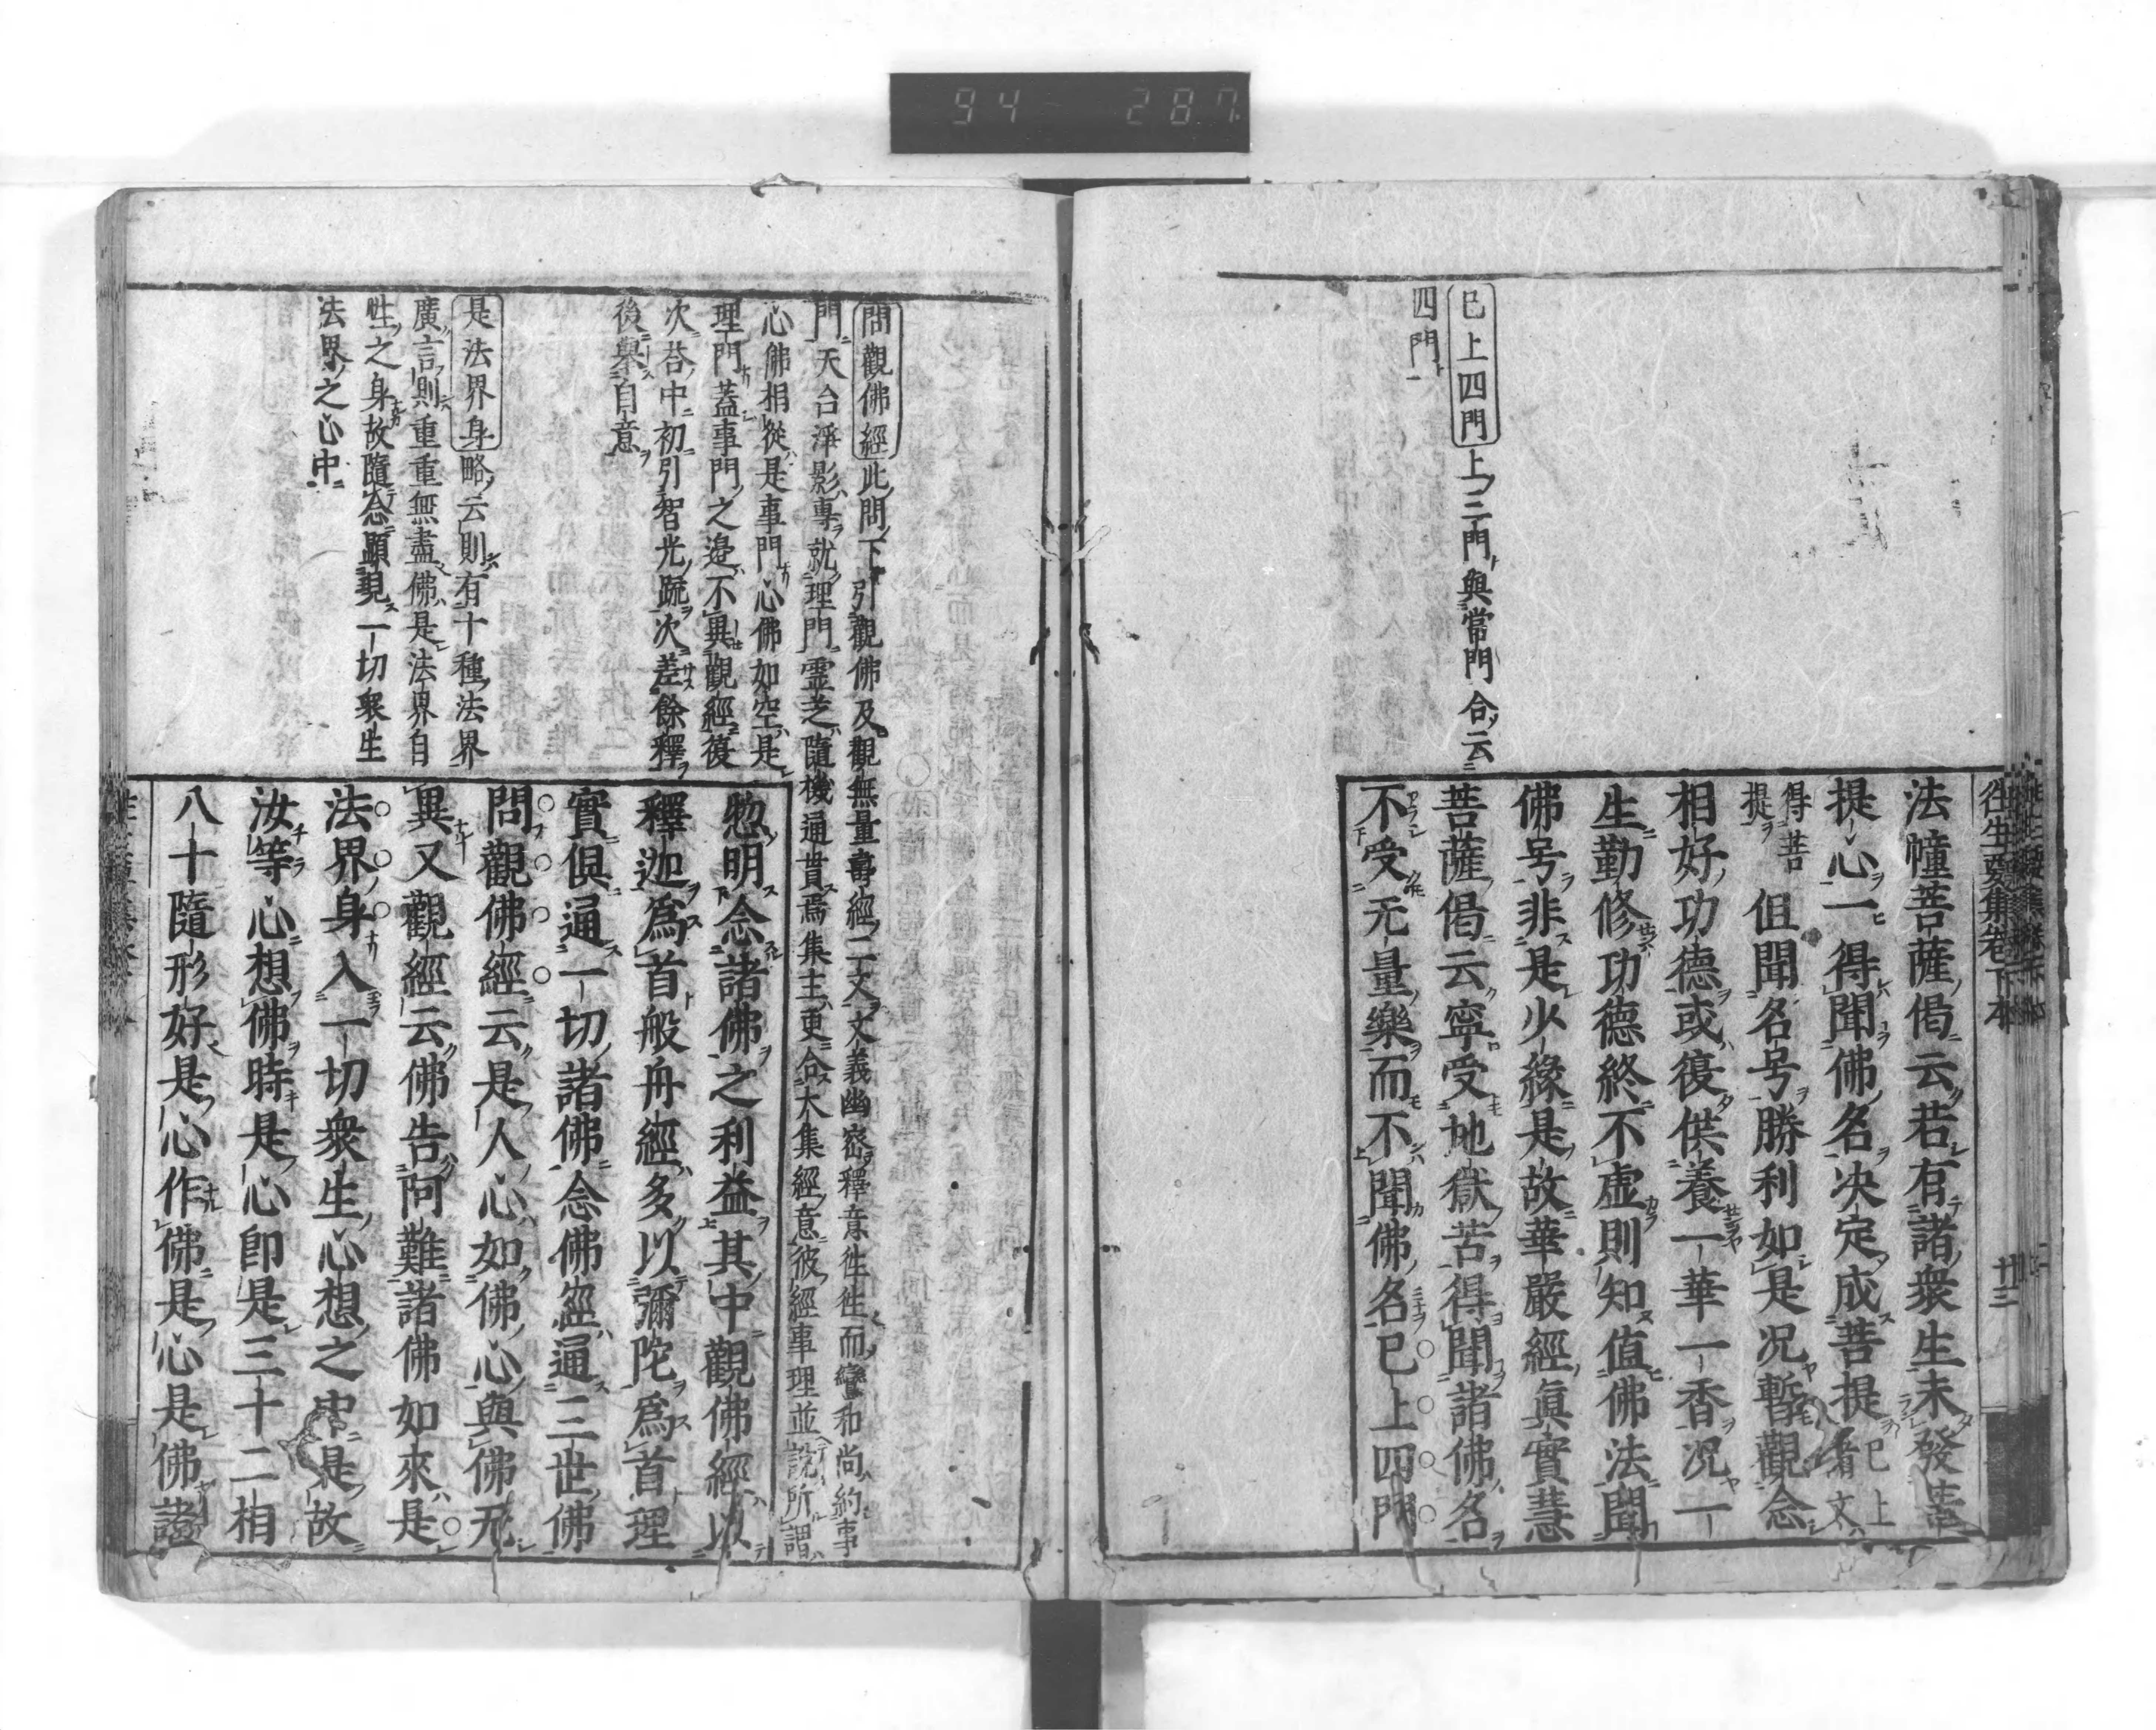 94 287
往生要集卷下本
十三
法幢菩薩偈云若有諸衆生未發菩
提心一得聞佛名決定成菩提 已上 文
得菩提 但聞名号勝利如是况暫觀念
相好功德或復供養一華一香况一
生勤修功德終不虛則知值佛法聞
佛号非是少緣是故華嚴經真實慧
菩薩偈云寧受地獄苦得聞諸佛名
不受无量樂而不聞佛名已上四門
已上四門上三門與當門合云
四門
惣明念諸佛之利益其中觀佛經以
釋迦爲首般舟經多以彌陀爲首理
實俱通一切諸佛念佛經通三世佛
問觀佛經云是人心如佛心與佛无
異又觀經云佛告阿難諸佛如來是
法界身入一切衆生心想之中是故
汝等心想佛時是心即是三十二相
八十隨形好是心作佛是心是佛諸
問觀佛經此問下引觀佛及觀無量壽經二文文義幽密釋意往往而鸞和尚約事
門天台淨影專就理門靈芝隨機通貫焉集主更合大集經意彼經事理並說所謂
心佛相從是事門心佛如空是
理門蓋事門之邊不異觀經復
次荅中初引智光疏次差餘釋
後與自意
是法界身略云則有十種法界
廣言則重重無盡佛是法界自
性之身故隨念顯現一切衆生
法界之心中